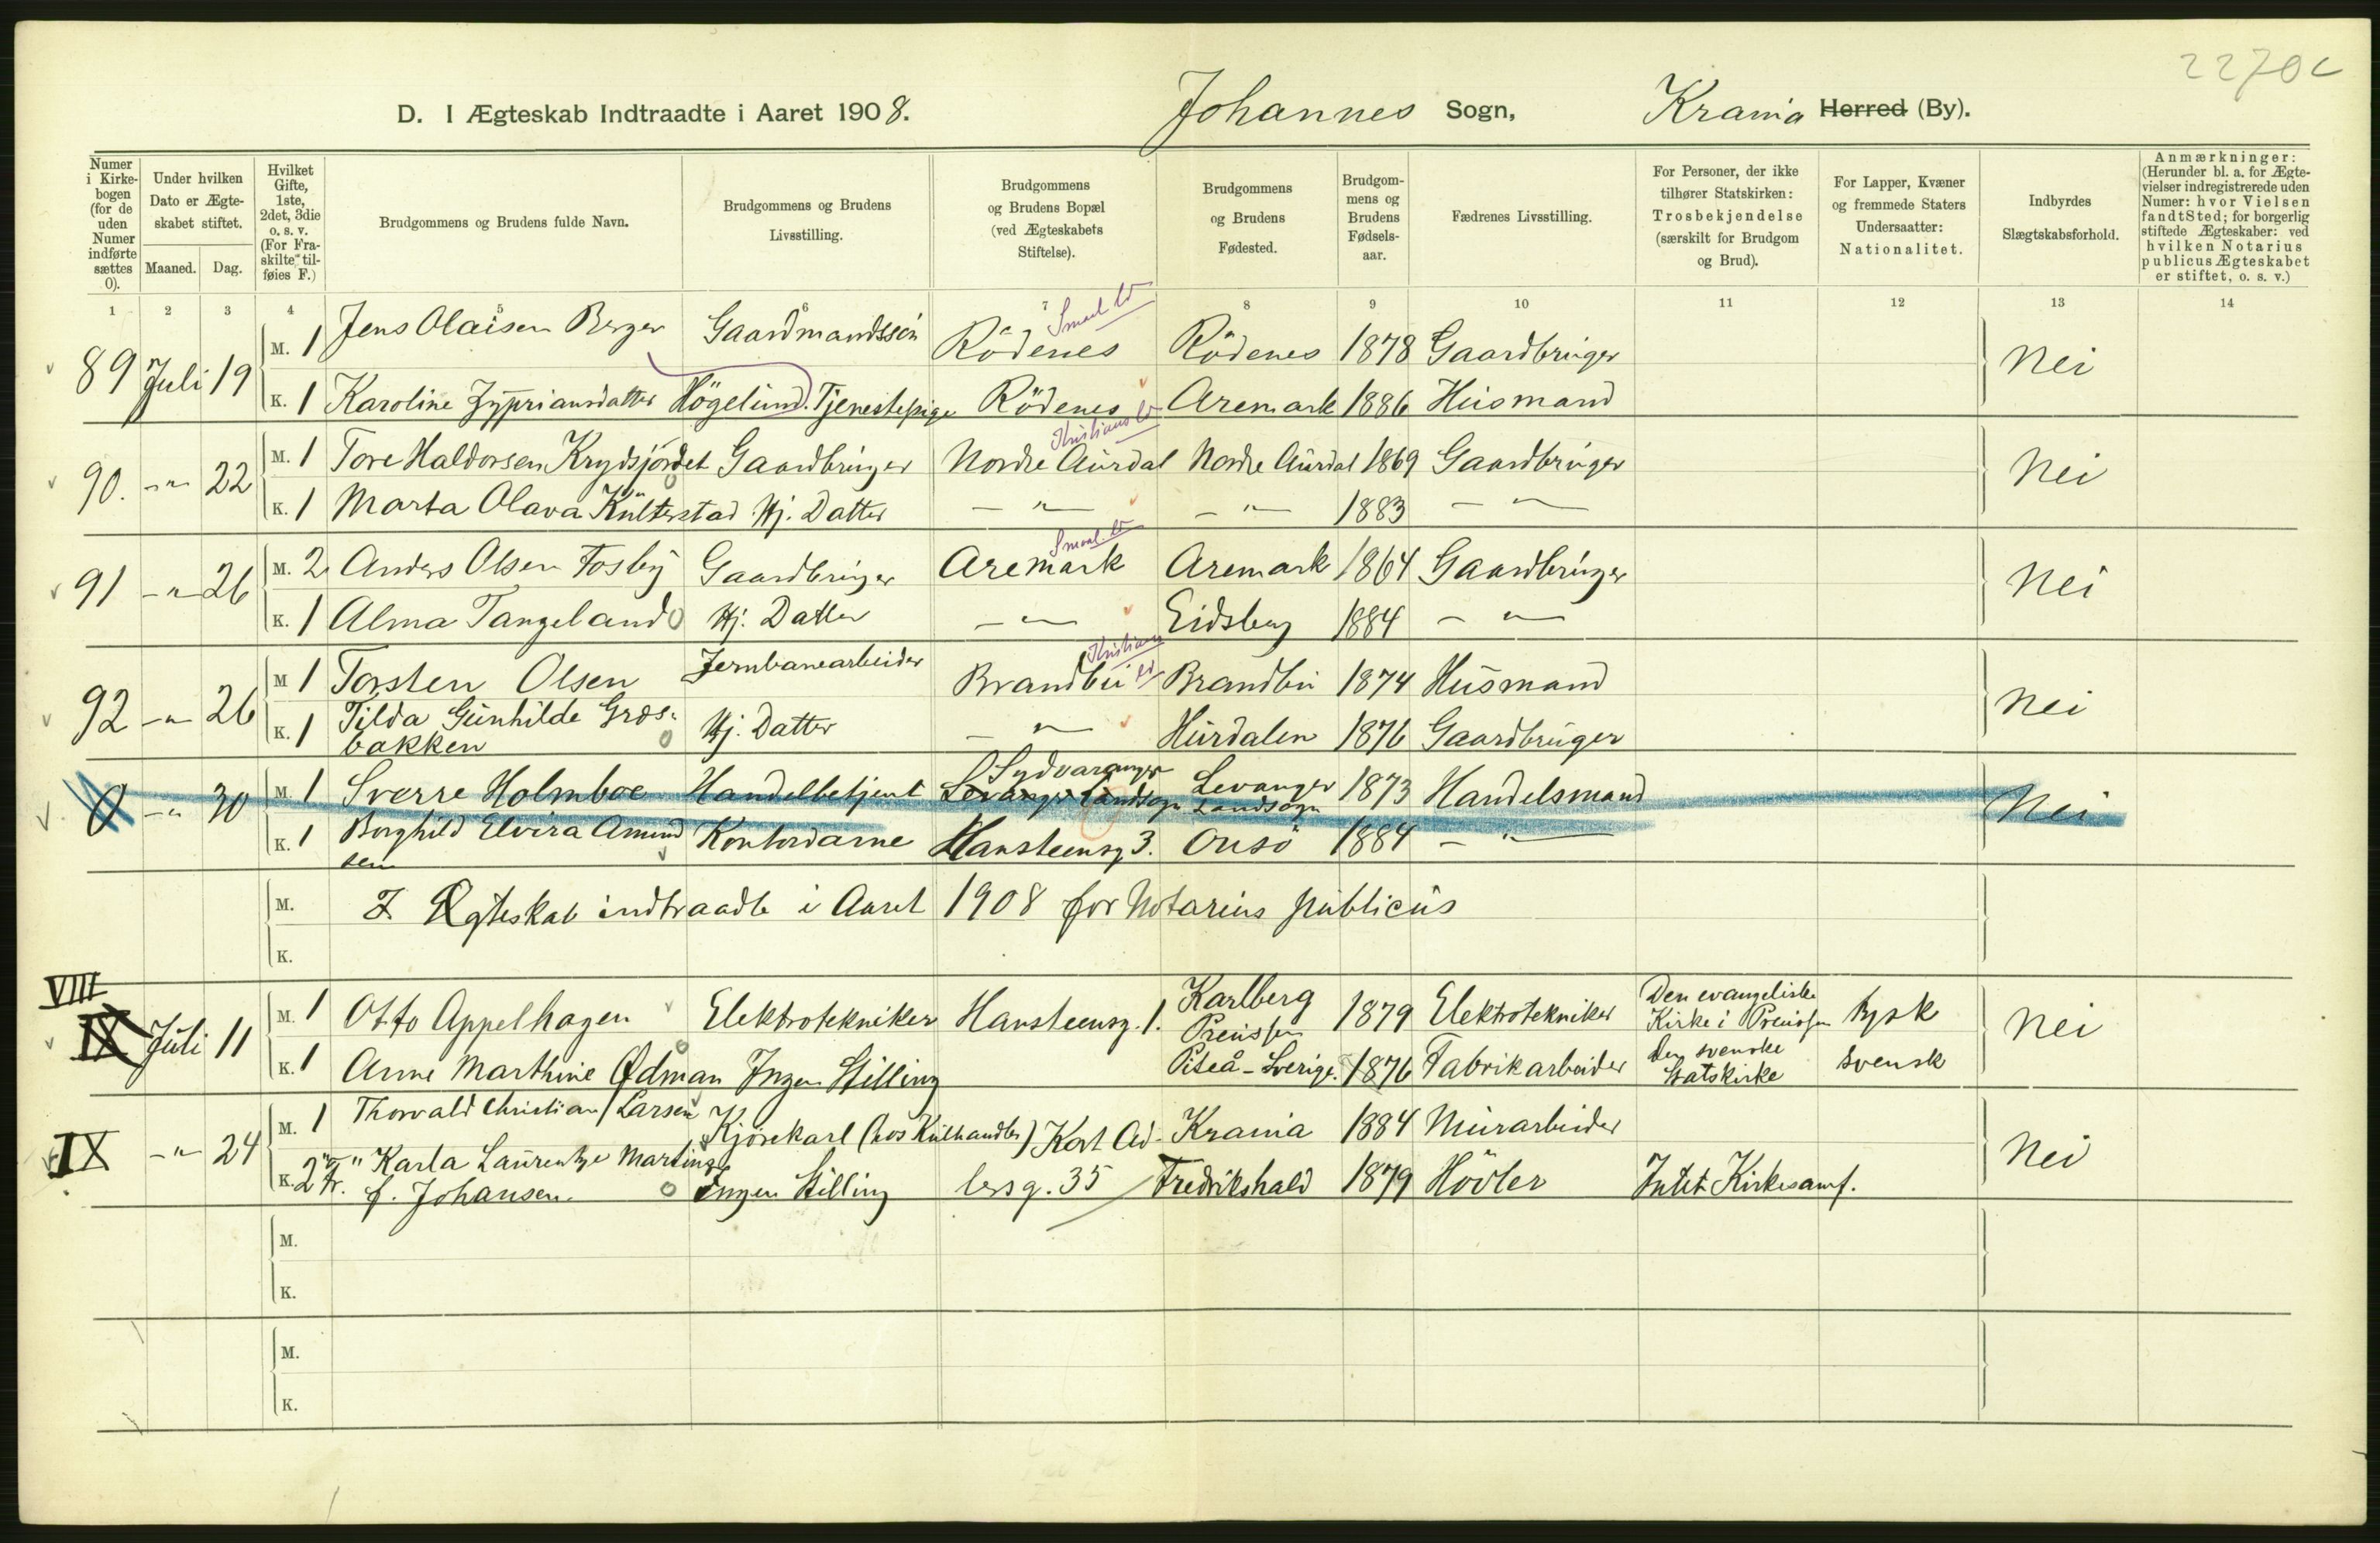 2270c
D. I Ægteskab Indtraadte i Aaret 1908. Johannes Sogn, Krania Herred (By).
Numer i Kirkebogen (for de uden Numer indførte sættes 0).
Under hvilken Dato er Ægteskabet stiftet.
Maaned. Dag.
Hvilket Gifte, 1ste, 2det, 3die o. s. v. (For Fraskilte tilføies F.)
Brudgommens og Brudens fulde Navn.
Brudgommens og Brudens Livsstilling.
Brudgommens og Brudens Bopæl (ved Ægteskabets Stiftelse).
Brudgommens og Brudens Fødested.
Brudgommens og Brudens Fødselsaar.
Fædrenes Livsstilling.
For Personer, der ikke tilhører Statskirken: Trosbekjendelse (særskilt for Brudgom og Brud).
For Lapper, Kvæner og fremmede Staters Undersaatter: Nationalitet.
Indbyrdes Slægtskabsforhold.
Anmærkninger: (Herunder bl. a. for Ægtevielser indregistrerede uden Numer: hvor Vielsen fandt Sted; for borgerlig stiftede Ægteskaber: ved hvilken Notarius publicus Ægteskabet er stiftet, o. s. v.)
1 2 3 4 5 6 7 8 9 10 11 12 13 14
89 Juli 19 M. 1 Jens Olaisen Berger Gaardmandssön Rödenes Smaal Rödenes 1878 Gaardbruger Nei
K. 1 Karoline Zypriansdatter Högelund. Tjenestepige Rödenes Aremark 1886 Husmand
90. -"- 22 M. 1 Tore Haldorsen Krydsjördet Gaardbruger Nordre Aurdal Kristians Nordre Aurdal 1869 Gaardbruger Nei
K. 1 Marta Olava Kulterstad Hj. Datter -"- -"- 1883 -"-
91 -"- 26 M. 2 Anders Olsen Fosby Gaardbruger Aremark Smaal. Aremark 1864 Gaardbruger Nei
K. 1 Alma Tangeland Hj. Datter -"- Eidsberg 1884 -"-
92 -"- 26 M 1 Torsten Olsen Jernbanearbeider Brandbu Kristians Brandbu 1874 Husmand Nei
K. 1 Tilda Gunhilde Grosbakken Hj. Datter -"- Hurdalen 1876 Gaardbruger
0 -"- 30 M. 1 Sverre Holmboe Handelbetjent Sydvaranger Levanger Landsogn Levanger Landsogn 1873 Handelsmand Nei
K. 1 Borghild Elvira Amundsen Kontordame Hansteensg. 3. Onsö 1884 -"-
M. I Ægteskab indtraadte i Aaret 1908 for Notarius publicus
K.
VIII IX Juli 11 M. 1 Otto Appelhagen Elektrotekniker Hansteensg. 1. Karlberg Preussen 1879 Elektrotekniker Den evangeliske Kirke i Preussen tysk Nei
K. 1 Anne Marthine Ödman Ingen Stilling Piteå - Sverige. 1876 Fabrikarbeider Den svenske Statskirke svensk
IX -"- 24 M. 1 Thorvald Christian Larsen Kjörekarl (hos Kulhandler) Kort Ad- Krania 1884 Murarbeider Nei
K. 2 Fr. Karla Laurentze Martinge f. Johansen. Ingen Stilling lersg. 35 Fredrikshald 1879 Hövler Intet Kirkesamf.
M.
K.
M.
K.